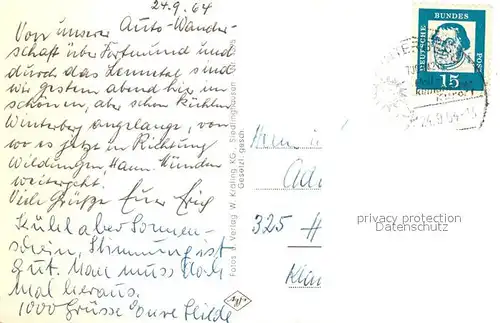 24.9.64
Von unserer Auto-Wander-
schaft über Dortmund und
durch das Lennetal sind
wir gestern abend hier im
schönen, aber schon kühlen
Winterberg angelangt, von
wo es jetzt in Richtung
Wildungen, Hann. Münden
weitergeht.
Viele Grüße Euer Erich
Kühl aber Sonnen-
schein, Stimmung ist
gut. Man muss doch
mal heraus.
1000 Grüsse Eure Hilde
Fotos u. Verlag W. Kräling KG., Siedlinghausen
Gesetzl. gesch.
Agfa
DEUTSCHE BUNDESPOST
15
24.9.64-15
325 H
privacy protection
Datenschutz